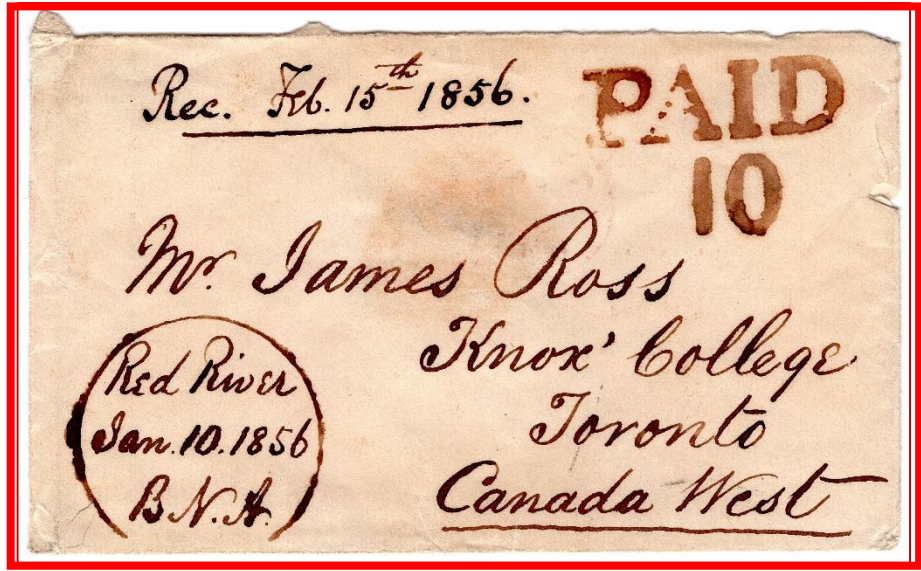 Rec. Feb. 15th 1856.
PAID
10
Mr. James Ross
Knox' College
Toronto
Canada West
Red River
Jan. 10. 1856
B.N.A.